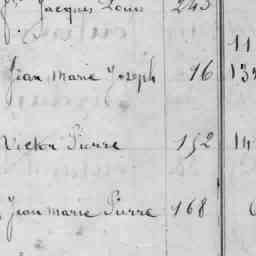 Jacques Louis 243
11
Jean Marie Joseph 16
Victor Pierre 152 14
Jean Marie Pierre 168